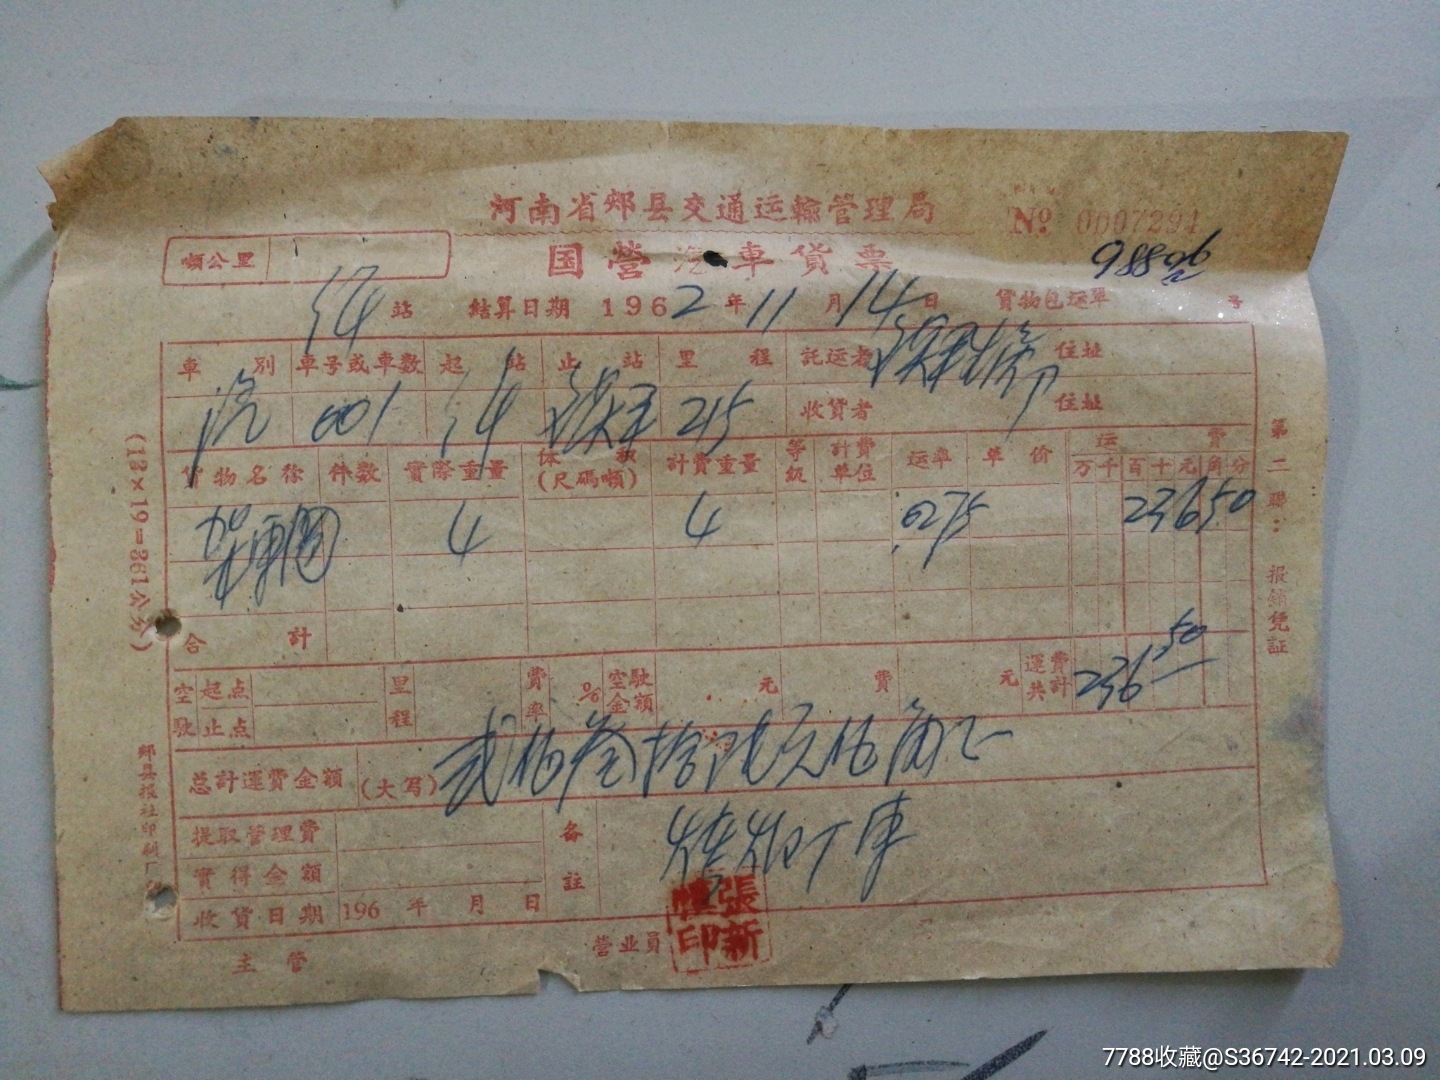 河南省郟县交通运輸管理局
№ 0007294
国营汽車貨票
98806
噸公里
站 結算日期 1962年11月14日 貨物包运單 号
車別 車号或車数 起站 止站 里程 託运者 住址
汽 001 215 收貨者 住址
貨物名称 件数 實際重量 体 (尺碼噸) 計費重量 等級 計費單位 运率 單价 运費 万千百十元角分
架車圈 4 4 .275 23650
合計
空駛 起点 止点 里程 費率 % 空駛金額 元 費 元 運費共計 236.50
总計運費金額 (大写) 贰佰叁拾陆元伍角正
提取管理費 备註
實得金額
收貨日期 196 年 月 日
主管 营业员
張新 印
第二聯：报銷凭証
(13×19=361公分)
郟县报社印刷厂
7788收藏@S36742-2021.03.09